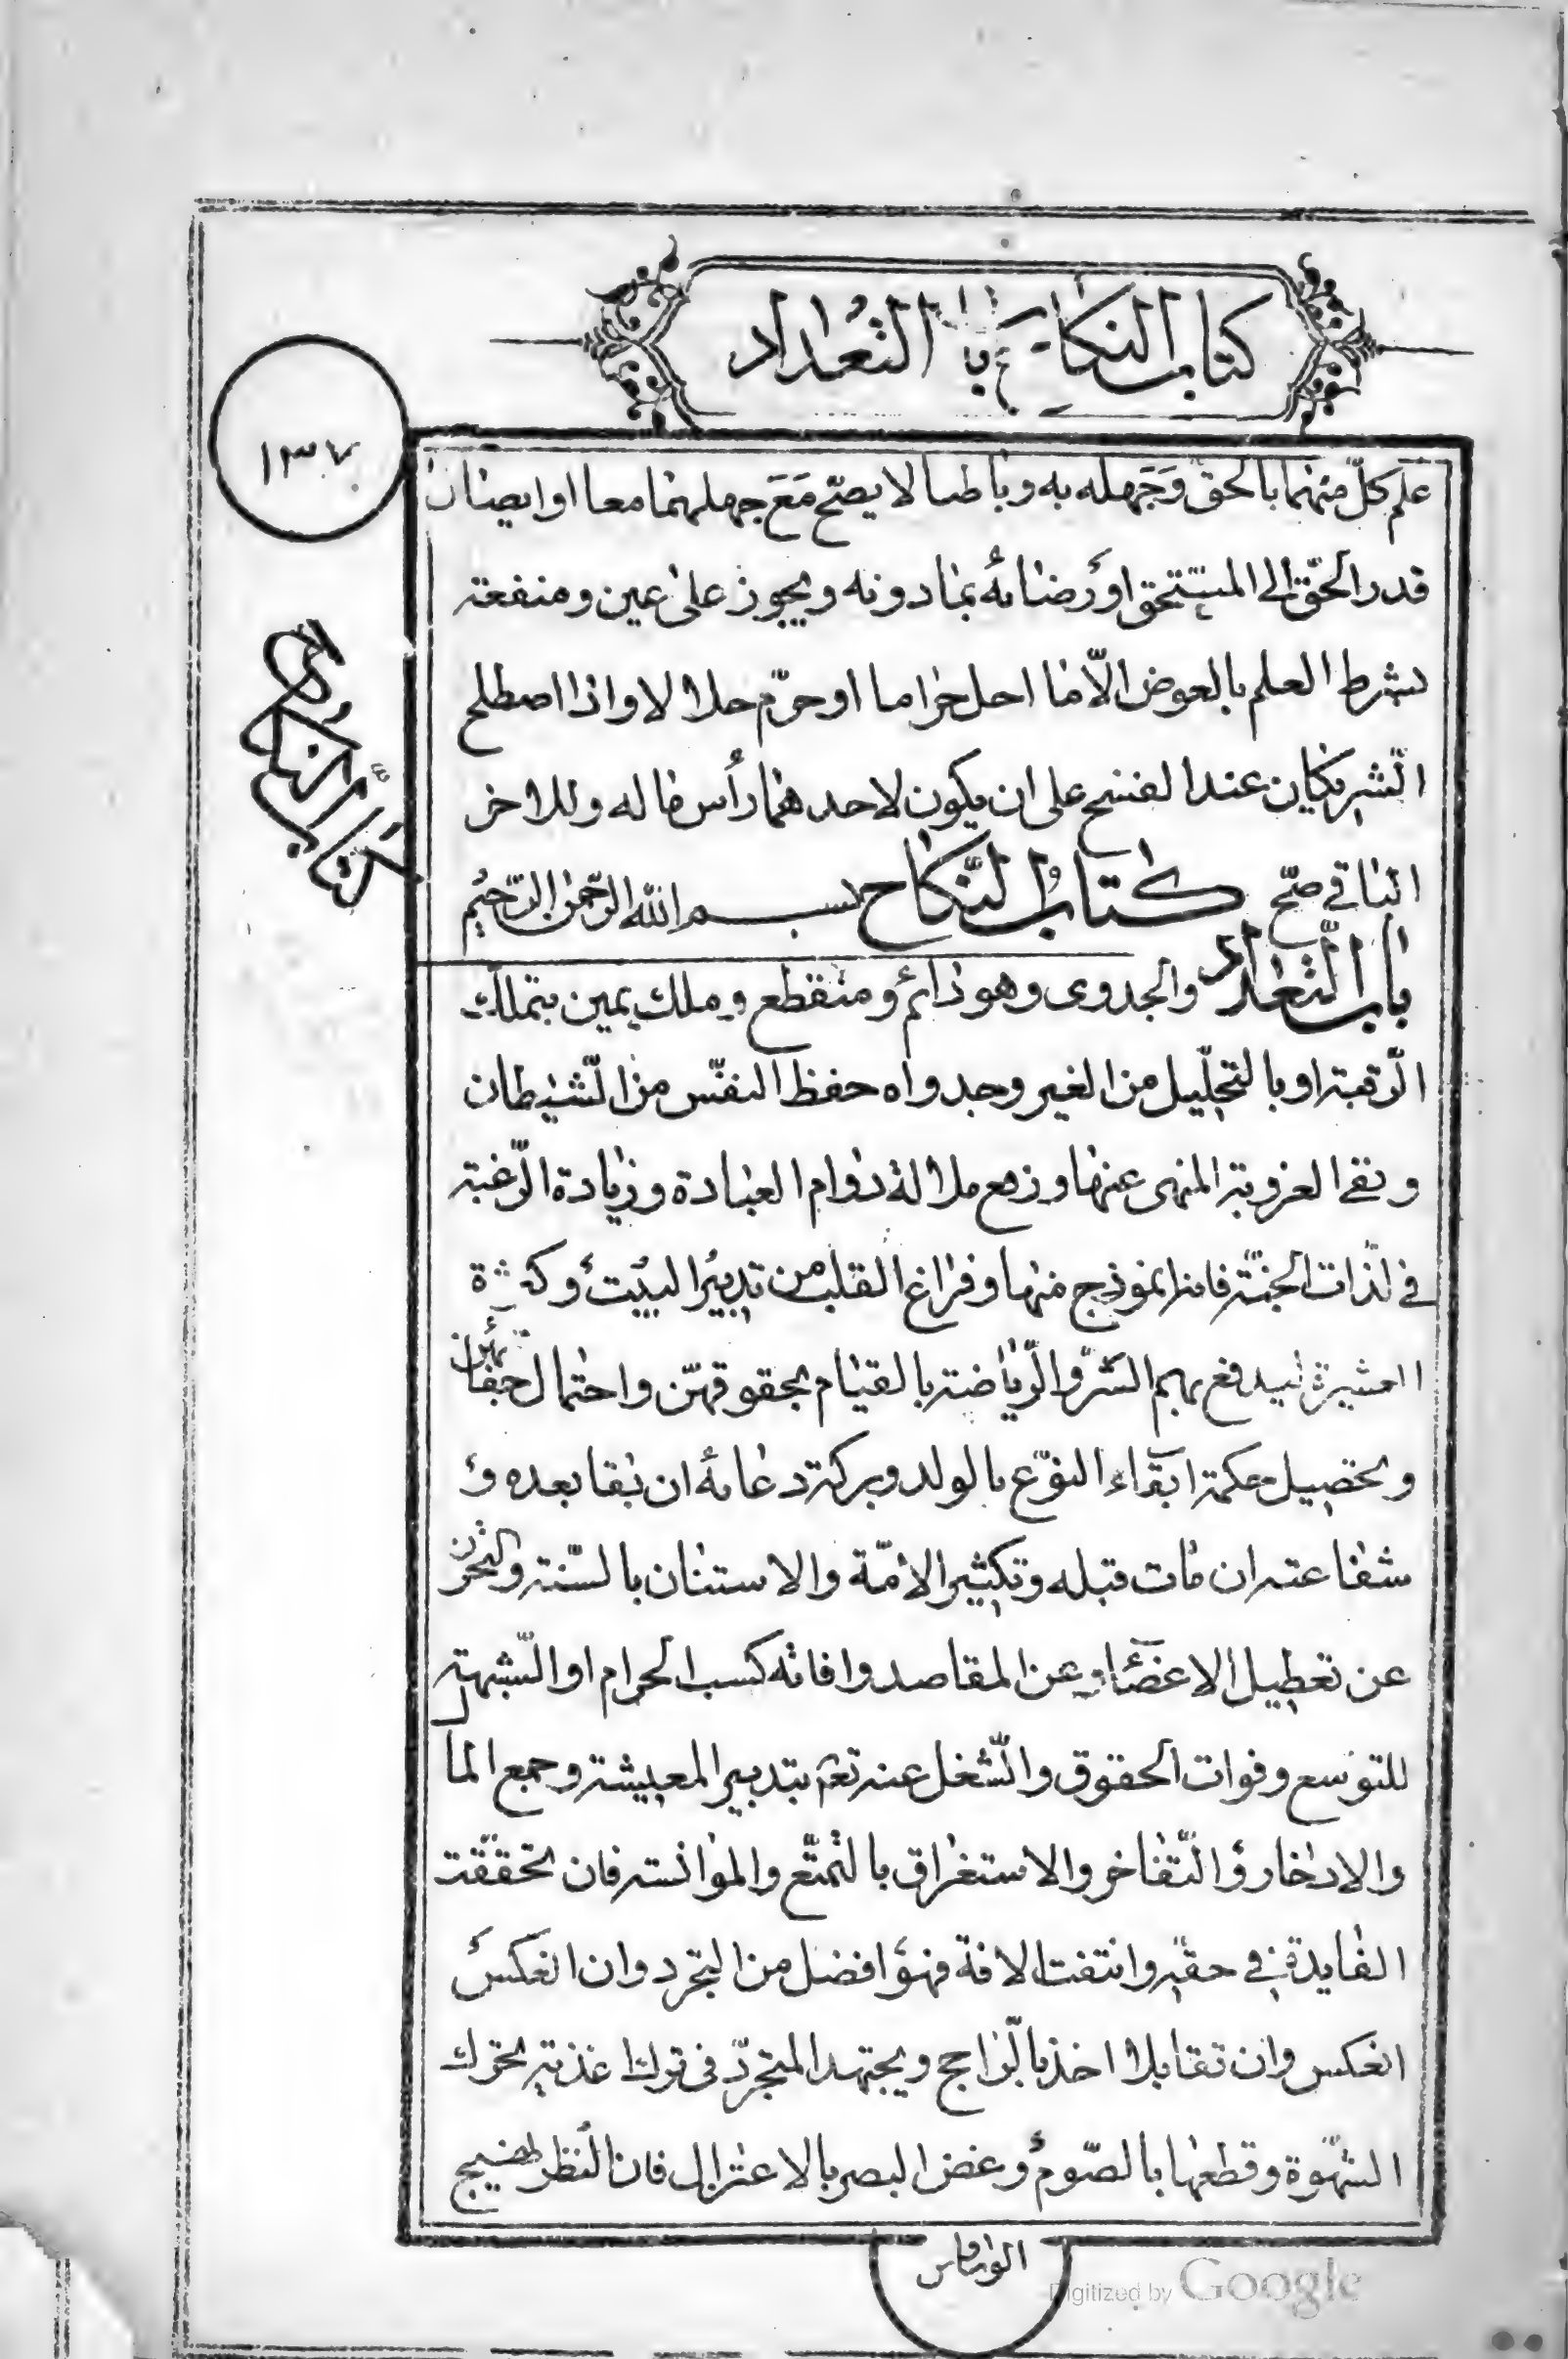 كتاب النكاح باب التعداد
١٣٧
علم كلّ منهما بالحقّ وَجَهله به وباطنا لا يصحّ مَعَ جهلهما معا او ايصال
قدر الحقّ الى المستحق او رضائه بما دونه ويجوز على عين ومنفعة
بشرط العلم بالعوض الّا ما احل حراما او حرّم حلالا واذا اصطلح
الشريكان عند الفسخ على ان يكون لاحدهما رأس ماله وللاخر
الباقي صحّ كتابُ النّكاح بسم الله الرّحمن الرّحيم
كتاب النكاح
باب التّعداد والجدوى وهو دائم ومنقطع وملك يمين بتملك
الرّقبة او بالتحليل من الغير وجدواه حفظ النفس من الشيطان
ونفى العزوبة المنهى عنها ودفع ملالة دوام العبادة وزيادة الرّغبة
في لذات الجنّة فانه انموذج منها وفراغ القلب من تدبير البيت وكثرة
العشيرة ليدفع بهم الشرّ والرّياضة بالقيام بحقوقهنّ واحتمال جفائهن
وتحصيل حكمة ابقاء النوع بالولد وبركة دعائه ان بقا بعده و
شفاعته ان مات قبله وتكثير الامّة والاستنان بالسّنة والتحرز
عن تعطيل الاعضاء عن المقاصد وافاته كسب الحرام او الشّبهة
للتوسع وفوات الحقوق والشّغل عنه تعم بتدبير المعيشة وجمع المال
والادخار والتّفاخر والاستغراق بالتمتّع والموانسة فان تحققت
الفايدة في حقه وانتفت الافة فهو افضل من التجرد وان انعكس
انعكس وان تقابلا اخذ بالرّاجح ويجتهد المتجرّد في ترك اغذية تحرك
الشهوة وقطعها بالصّوم وغض البصر بالاعتزال فان النظر يهيج
الوساوس
Digitized by Google